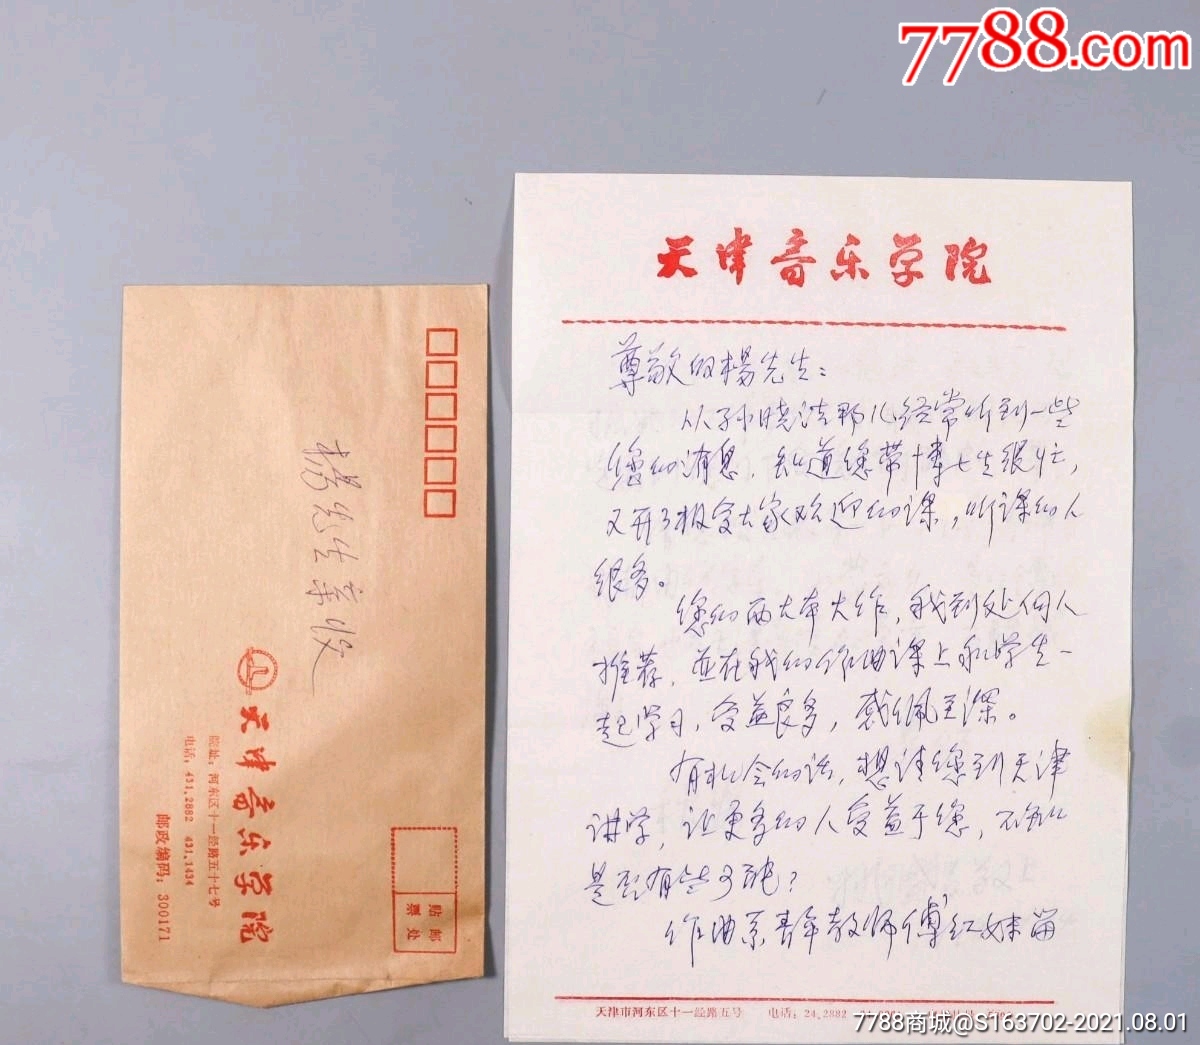 7788.com
天津音乐学院
尊敬的杨先生:
从孙晓洁那儿经常听到一些
您的消息,知道您带博士生很忙,
又开了极受大家欢迎的课,听课的人
很多。
您的两大本大作,我到处向人
推荐,并在我的作曲课上和学生一
起学习,受益良多,感佩至深。
有机会的话,想请您到天津
讲学,让更多的人受益于您,不知
是否有些可能?
作曲系青年教师傅红妹留
天津市河东区十一经路五号 电话:24.2882
杨先生亲收
天津音乐学院
院址:河东区十一经路五十七号
电话:431.2882 431.1434
邮政编码:300171
贴邮
票处
7788商城@S163702-2021.08.01